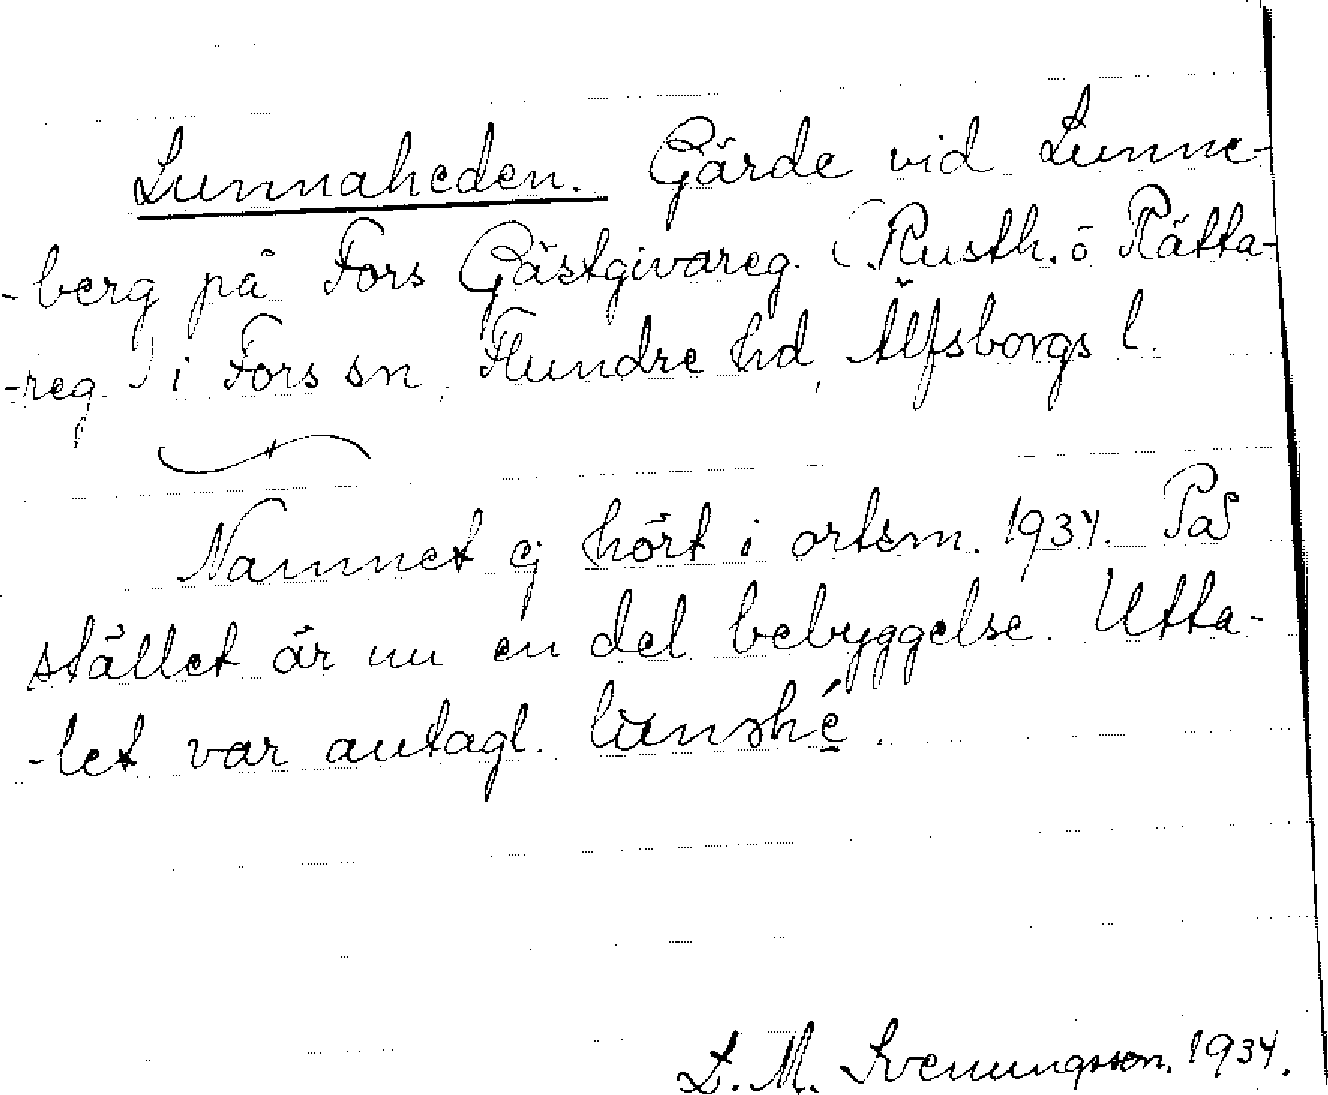 Lunnaheden. Gärde vid Lunne-
-berg på Fors Gästgivareg. (Rusth. o Rätta-
-reg.) i Fors sn, Flundre hd, Älfsborgs l.
Namnet ej hört i ortsm. 1934. På
stället är nu en del bebyggelse. Utta-
-let var antagl.
L. M. Svenungsson. 1934.